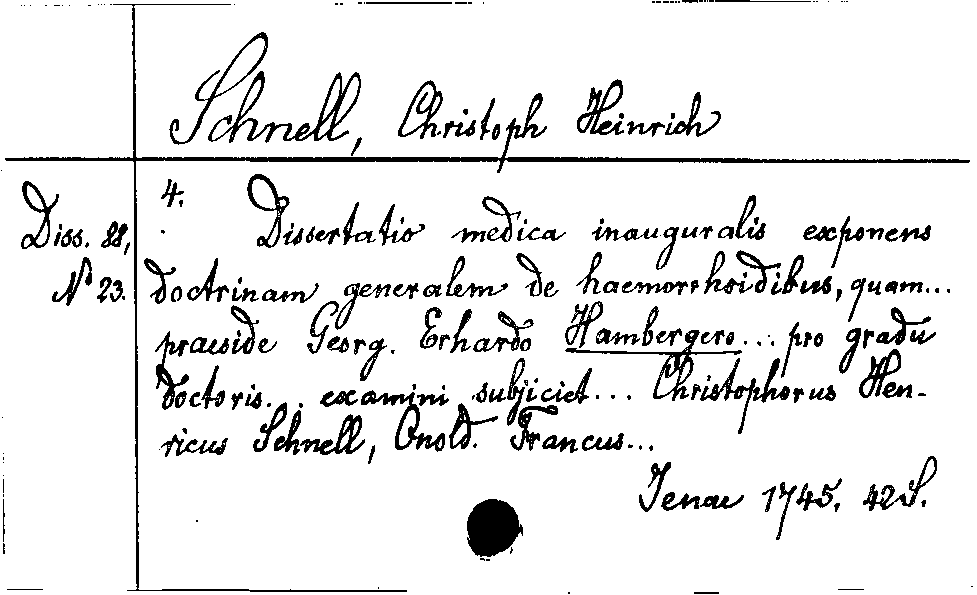 Schnell, Christoph Heinrich
4.
Diss. 88,
N° 23.
Dissertatio medica inauguralis exponens
doctrinam generalem de haemorrhoidibus, quam...
praeside Georg. Erhardo Hambergero... pro gradu
doctoris... examini subjiciet... Christophorus Hen-
ricus Schnell, Onold. Francus...
Jenae 1745. 42 S.